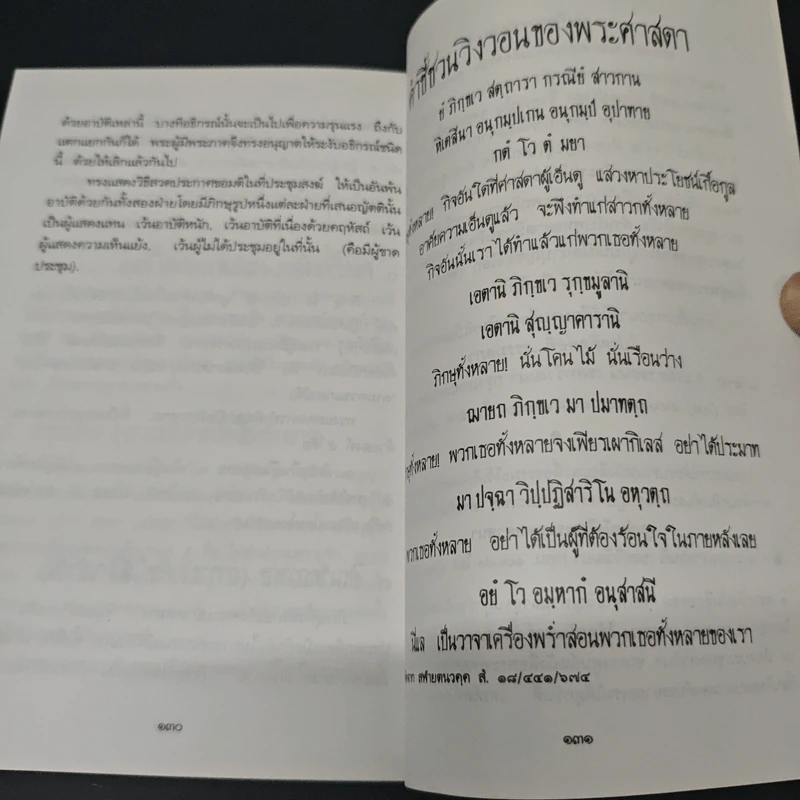 ด้วยอาบัติเหล่านี้ บางทีอธิกรณ์นั้นจะเป็นไปเพื่อความรุนแรง ถึงกับ
แตกแยกกันก็ได้ พระผู้มีพระภาคจึงทรงอนุญาตให้ระงับอธิกรณ์ชนิด
นี้ ด้วยให้เลิกแล้วกันไป
ทรงแสดงวิธีสวดประกาศขอมติในที่ประชุมสงฆ์ ให้เป็นอันพ้น
อาบัติด้วยกันทั้งสองฝ่ายโดยมีภิกษุรูปหนึ่งแต่ละฝ่ายที่เสนอญัตตินั้น
เป็นผู้แสดงแทน เว้นอาบัติหนัก, เว้นอาบัติที่เนื่องด้วยคฤหัสถ์ เว้น
ผู้แสดงความเห็นแย้ง, เว้นผู้ไม่ได้ประชุมอยู่ในที่นั้น (คือมีผู้ขาด
ประชุม).
๑๓๐
คำชี้ชวนวิงวอนของพระศาสดา
ยํ ภิกฺขเว สตฺถารา กรณียํ สาวกานํ
หิเตสินา อนุกมฺปเกน อนุกมฺปํ อุปาทาย
กตํ โว ตํ มยา
กิจอันใดที่ศาสดาผู้เอ็นดู แสวงหาประโยชน์เกื้อกูล
อาศัยความเอ็นดูแล้ว จะพึงทำแก่สาวกทั้งหลาย
กิจอันนั้นเราได้ทำแล้วแก่พวกเธอทั้งหลาย
เอตานิ ภิกฺขเว รุกฺขมูลานิ
เอตานิ สุญฺญาคารานิ
ภิกษุทั้งหลาย! นั่นโคนไม้ นั่นเรือนว่าง
ฌายถ ภิกฺขเว มา ปมาทตฺถ
พวกเธอทั้งหลายจงเพียรเผากิเลส อย่าได้ประมาท
มา ปจฺฉา วิปฺปฏิสาริโน อหุวตฺถ
พวกเธอทั้งหลาย อย่าได้เป็นผู้ที่ต้องร้อนใจในภายหลังเลย
อยํ โว อมฺหากํ อนุสาสนี
นี่แล เป็นวาจาเครื่องพร่ำสอนพวกเธอทั้งหลายของเรา
สฬายตนวคฺค สํ. ๑๘/๔๔๑/๖๗๔
๑๓๑